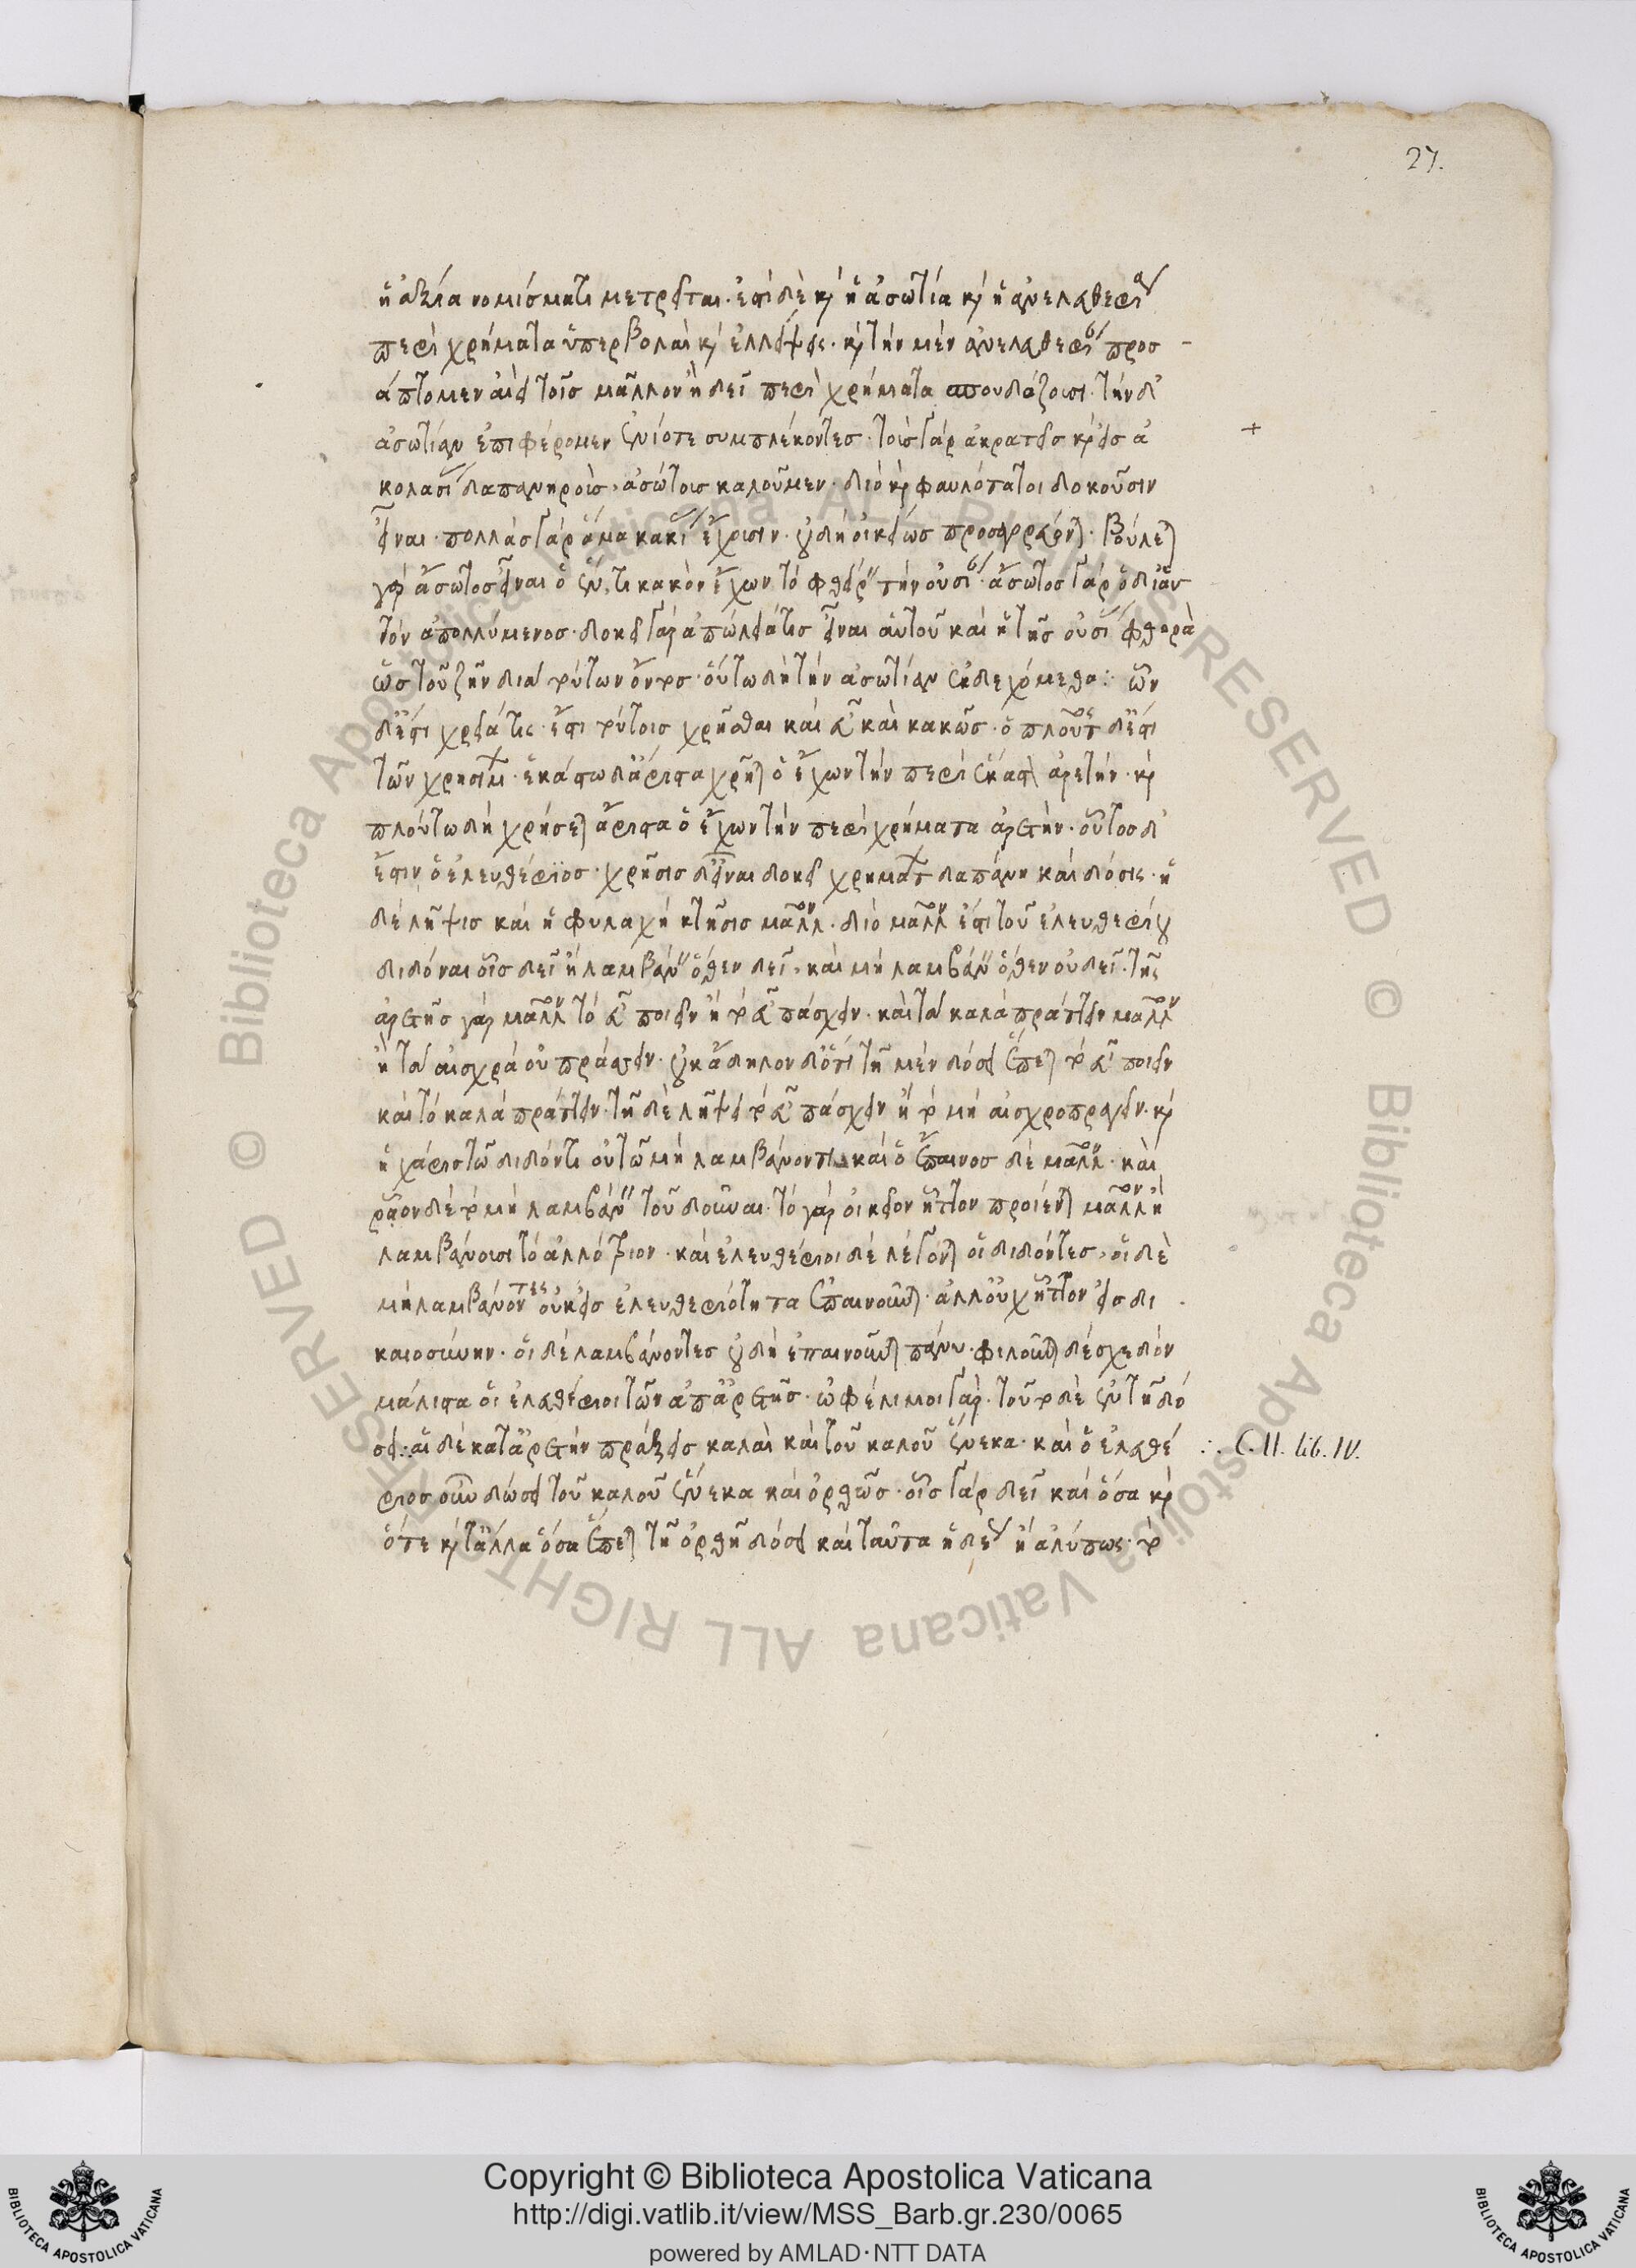 27.
ἡ ἀξία νομίσματι μετρεῖται· ἐστὶ δὲ καὶ ἡ ἀσωτία καὶ ἡ ἀνελευθερία
περὶ χρήματα ὑπερβολαὶ καὶ ἐλλείψεις· καὶ τὴν μὲν ἀνελευθερίαν προσ
άπτομεν ἀεὶ τοῖς μᾶλλον ἢ δεῖ περὶ χρήματα σπουδάζουσι· τὴν δ'
ἀσωτίαν ἐπιφέρομεν ἐνίοτε συμπλέκοντες· τοὺς γὰρ ἀκρατεῖς καὶ εἰς ἀ
κολασίαν δαπανηροὺς, ἀσώτους καλοῦμεν· διὸ καὶ φαυλότατοι δοκοῦσιν
εἶναι· πολλὰς γὰρ ἅμα κακίας ἔχουσιν· οὐ δὴ οἰκείως προσαγορεύονται· βούλεται
γὰρ ἄσωτος εἶναι ὁ ἕν τι κακὸν ἔχων τὸ φθείρειν τὴν οὐσίαν· ἄσωτος γὰρ ὁ δι' αὑ
τὸν ἀπολλύμενος· δοκεῖ γὰρ ἀπώλειά τις εἶναι αὑτοῦ καὶ ἡ τῆς οὐσίας φθορὰ
ὡς τοῦ ζῆν διὰ τούτων ὄντος· οὕτω δὴ τὴν ἀσωτίαν ἐκδεχόμεθα: ὧν
δ' ἐστὶ χρεία τις· ἔστι τούτοις χρῆσθαι καὶ εὖ καὶ κακῶς· ὁ πλοῦτος δ' ἐστὶ
τῶν χρησίμων· ἑκάστω δ' ἄριστα χρῆται ὁ ἔχων τὴν περὶ ἕκαστα ἀρετήν· καὶ
πλούτω δὴ χρήσεται ἄριστα ὁ ἔχων τὴν περὶ χρήματα ἀρετήν· οὗτος δ'
ἔστιν ὁ ἐλευθέριος· χρῆσις δ' εἶναι δοκεῖ χρημάτων δαπάνη καὶ δόσις· ἡ
δὲ λῆψις καὶ ἡ φυλακὴ κτῆσις μᾶλλον· διὸ μᾶλλον ἐστὶ τοῦ ἐλευθερίου
διδόναι οἷς δεῖ ἢ λαμβάνειν ὅθεν δεῖ, καὶ μὴ λαμβάνειν ὅθεν οὐ δεῖ· τῆς
ἀρετῆς γὰρ μᾶλλον τὸ εὖ ποιεῖν ἢ τὸ εὖ πάσχειν· καὶ τὰ καλὰ πράττειν μᾶλλον
ἢ τὰ αἰσχρὰ οὐ πράττειν· οὐκ ἄδηλον δ' ὅτι τῆ μὲν δόσει ἕπεται τὸ εὖ ποιεῖν
καὶ τὸ καλὰ πράττειν· τῆ δὲ λήψει τὸ εὖ πάσχειν ἢ τὸ μὴ αἰσχροπραγεῖν· καὶ
ἡ χάρις τῶ διδόντι οὐ τῶ μὴ λαμβάνοντι· καὶ ὁ ἔπαινος δὲ μᾶλλον· καὶ
ῥᾷον δὲ τὸ μὴ λαμβάνειν τοῦ δοῦναι· τὸ γὰρ οἰκεῖον ἧττον προΐενται μᾶλλον ἢ
λαμβάνουσι τὸ ἀλλότριον· καὶ ἐλευθέριοι δὲ λέγονται οἱ διδόντες, οἱ δὲ
μὴ λαμβάνοντες οὐκ εἰς ἐλευθεριότητα ἐπαινοῦνται· ἀλλ' οὐχ ἧττον εἰς δι
καιοσύνην· οἱ δὲ λαμβάνοντες οὐ δὴ ἐπαινοῦνται πάνυ· φιλοῦνται δὲ σχεδὸν
μάλιστα οἱ ἐλευθέριοι τῶν ἀπ' ἀρετῆς· ὠφέλιμοι γάρ· τοῦτο δὲ ἐν τῆ δό
σει: αἱ δὲ κατ' ἀρετὴν πράξεις καλαὶ καὶ τοῦ καλοῦ ἕνεκα· καὶ ὁ ἐλευθέ
ριος οὖν δώσει τοῦ καλοῦ ἕνεκα καὶ ὀρθῶς· οἷς γὰρ δεῖ καὶ ὅσα καὶ
ὅτε καὶ τἄλλα ὅσα ἕπεται τῆ ὀρθῆ δόσει καὶ ταῦτα ἡδέως ἢ ἀλύπως· τὸ
+
∴ C. II. lib. IV.
© Biblioteca Apostolica Vaticana ALL RIGHTS RESERVED
© Biblioteca Apostolica Vaticana ALL RIGHTS RESERVED
Copyright © Biblioteca Apostolica Vaticana
http://digi.vatlib.it/view/MSS_Barb.gr.230/0065
powered by AMLAD·NTT DATA
BIBLIOTECA APOSTOLICA VATICANA
BIBLIOTECA APOSTOLICA VATICANA